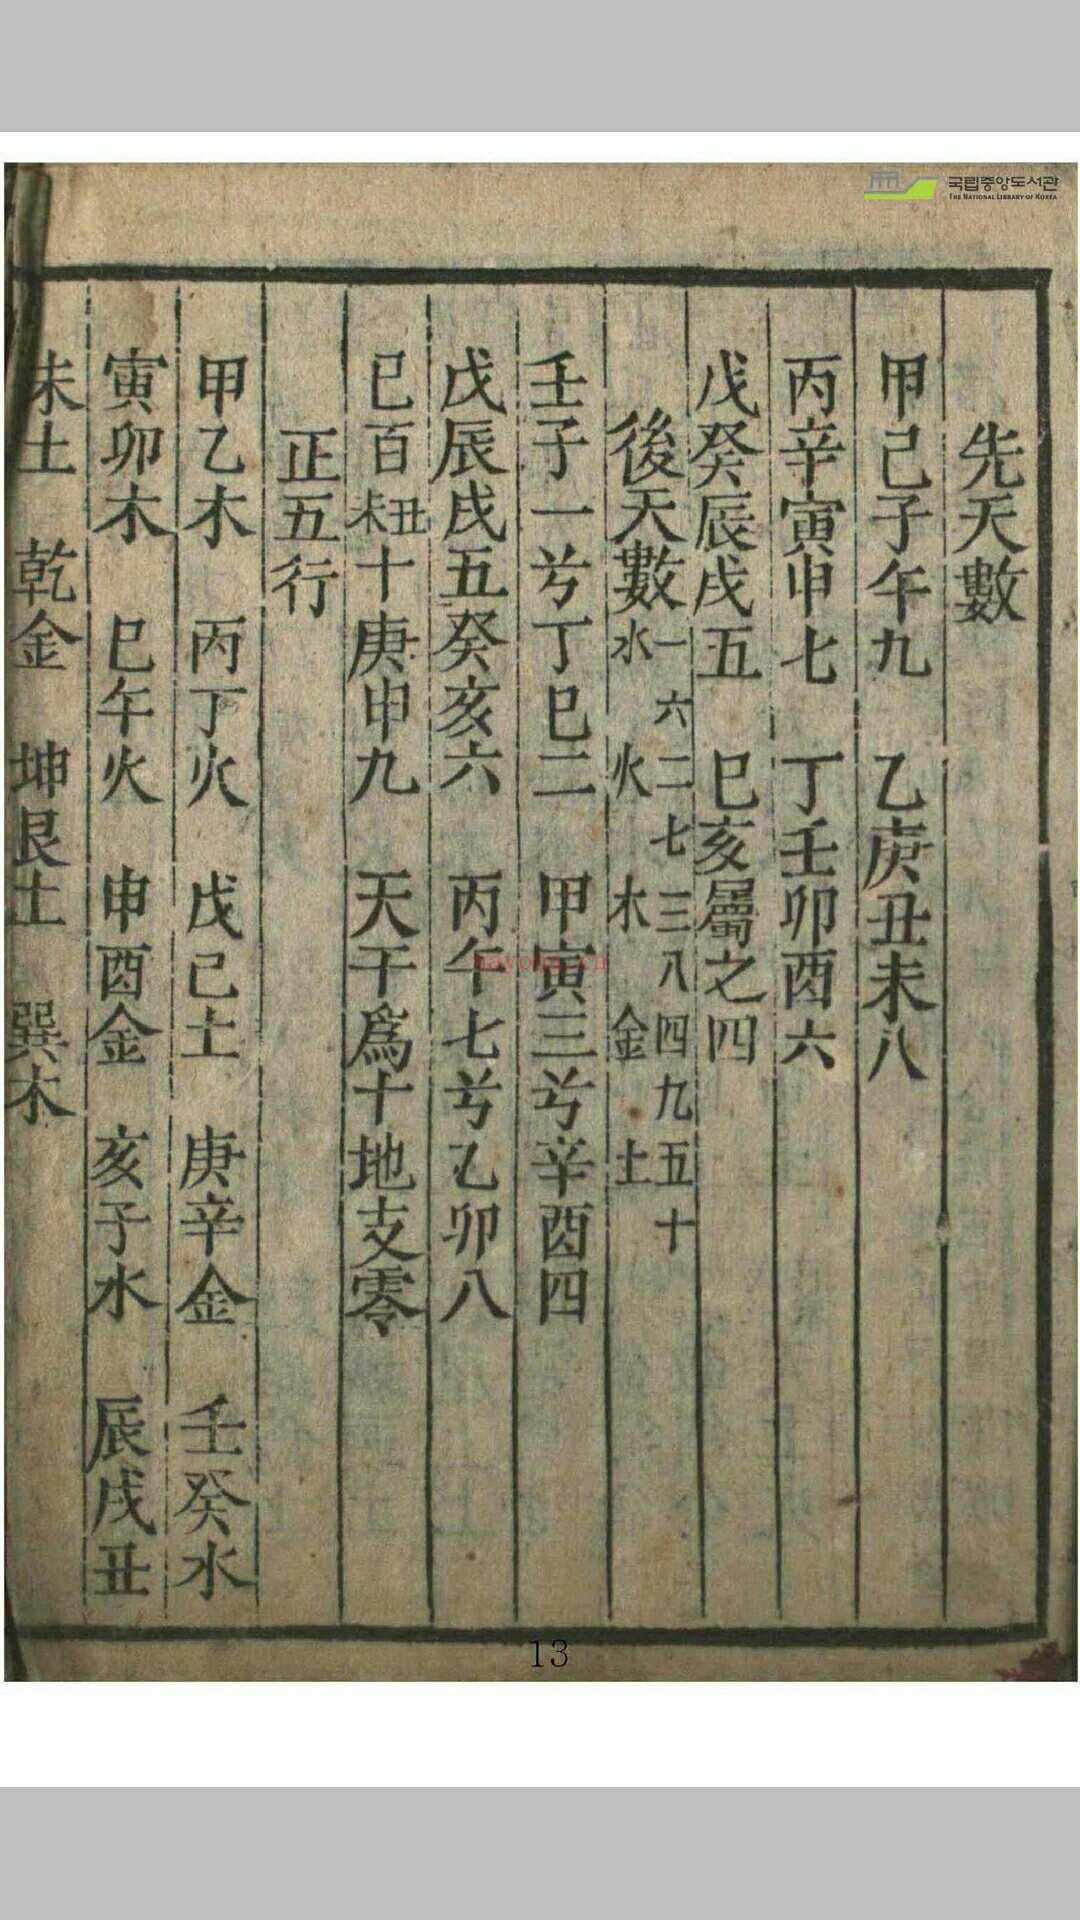 국립중앙도서관
THE NATIONAL LIBRARY OF KOREA
先天數
甲己子午九 乙庚丑未八
丙辛寅申七 丁壬卯酉六
戊癸辰戌五 巳亥屬之四
後天數 一六水 二七火 三八木 四九金 五十土
壬子一兮丁巳二 甲寅三兮辛酉四
戊辰戌五癸亥六 丙午七兮乙卯八
己百丑未十庚申九 天干爲十地支零
正五行
甲乙木 丙丁火 戊己土 庚辛金 壬癸水
寅卯木 巳午火 申酉金 亥子水 辰戌丑
未土 乾金 坤艮土 巽木
hayona.cn
13